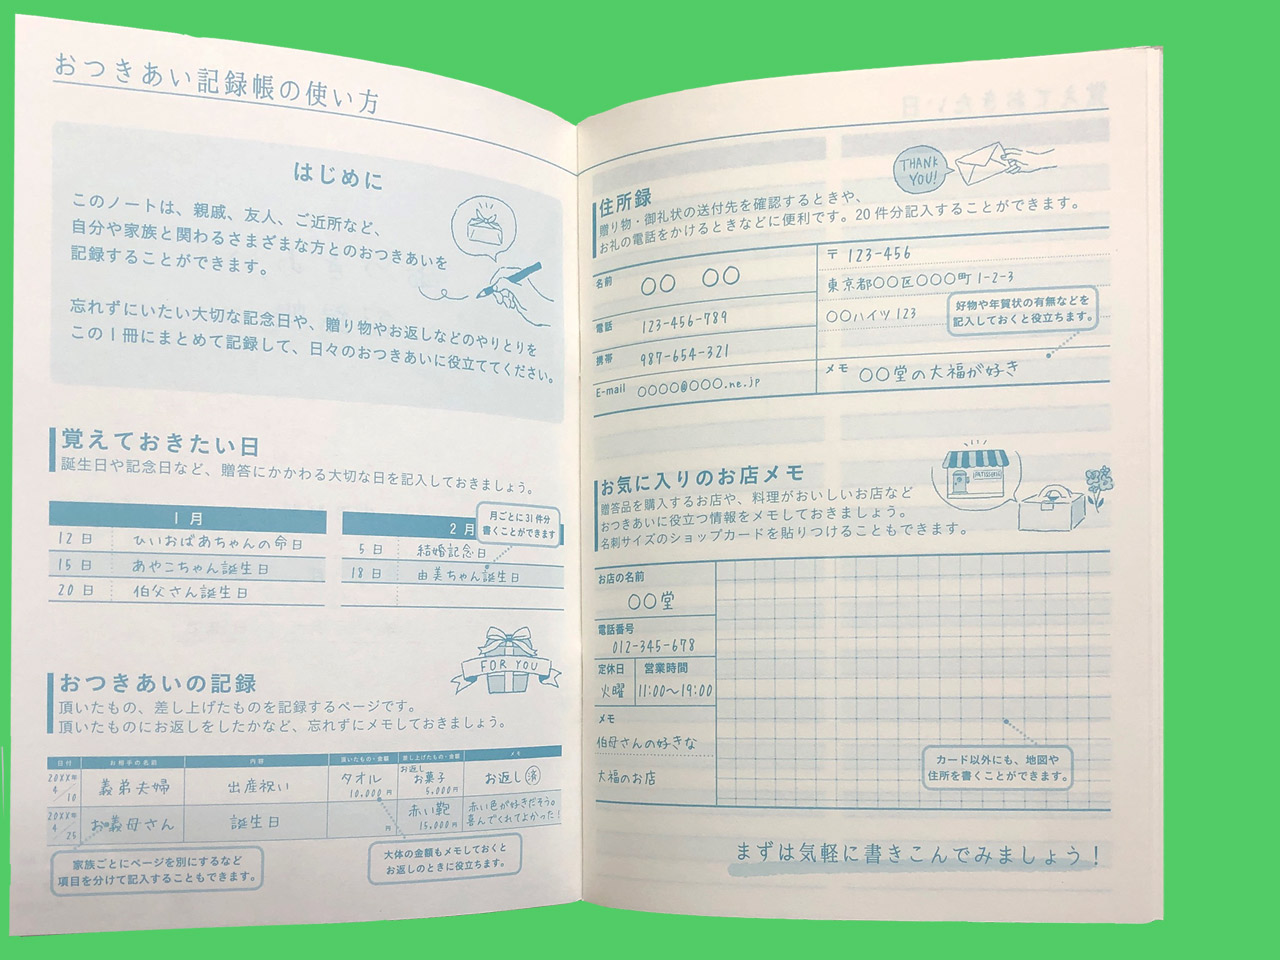 おつきあい記録帳の使い方
はじめに
このノートは、親戚、友人、ご近所など、
自分や家族と関わるさまざまな方とのおつきあいを
記録することができます。
忘れずにいたい大切な記念日や、贈り物やお返しなどのやりとりを
この1冊にまとめて記録して、日々のおつきあいに役立ててください。
覚えておきたい日
誕生日や記念日など、贈答にかかわる大切な日を記入しておきましょう。
1月
12日 ひいおばあちゃんの命日
15日 あやこちゃん誕生日
20日 伯父さん誕生日
2月
月ごとに31件分
書くことができます
5日 結婚記念日
18日 由美ちゃん誕生日
FOR YOU
おつきあいの記録
頂いたもの、差し上げたものを記録するページです。
頂いたものにお返しをしたかなど、忘れずにメモしておきましょう。
日付 お相手の名前 内容 頂いたもの・金額 差し上げたもの・金額 メモ
20XX年 4/10 義弟夫婦 出産祝い タオル 10,000円 お返し お菓子 5,000円 お返し済
20XX年 4/25 お義母さん 誕生日 円 赤い鞄 15,000円 赤い色が好きだそう。
喜んでくれてよかった!
家族ごとにページを別にするなど
項目を分けて記入することもできます。
大体の金額もメモしておくと
お返しのときに役立ちます。
THANK
YOU!
住所録
贈り物・御礼状の送付先を確認するときや、
お礼の電話をかけるときなどに便利です。20件分記入することができます。
名前 〇〇 〇〇
電話 123-456-789
携帯 987-654-321
E-mail 〇〇〇〇@〇〇〇.ne.jp
〒 123-456
東京都〇〇区〇〇〇町1-2-3
〇〇ハイツ123
好物や年賀状の有無などを
記入しておくと役立ちます。
メモ 〇〇堂の大福が好き
お気に入りのお店メモ
贈答品を購入するお店や、料理がおいしいお店など
おつきあいに役立つ情報をメモしておきましょう。
名刺サイズのショップカードを貼りつけることもできます。
PATISSERIE
お店の名前
〇〇堂
電話番号
012-345-678
定休日 営業時間
火曜 11:00〜19:00
メモ
伯母さんの好きな
大福のお店
カード以外にも、地図や
住所を書くことができます。
まずは気軽に書きこんでみましょう!